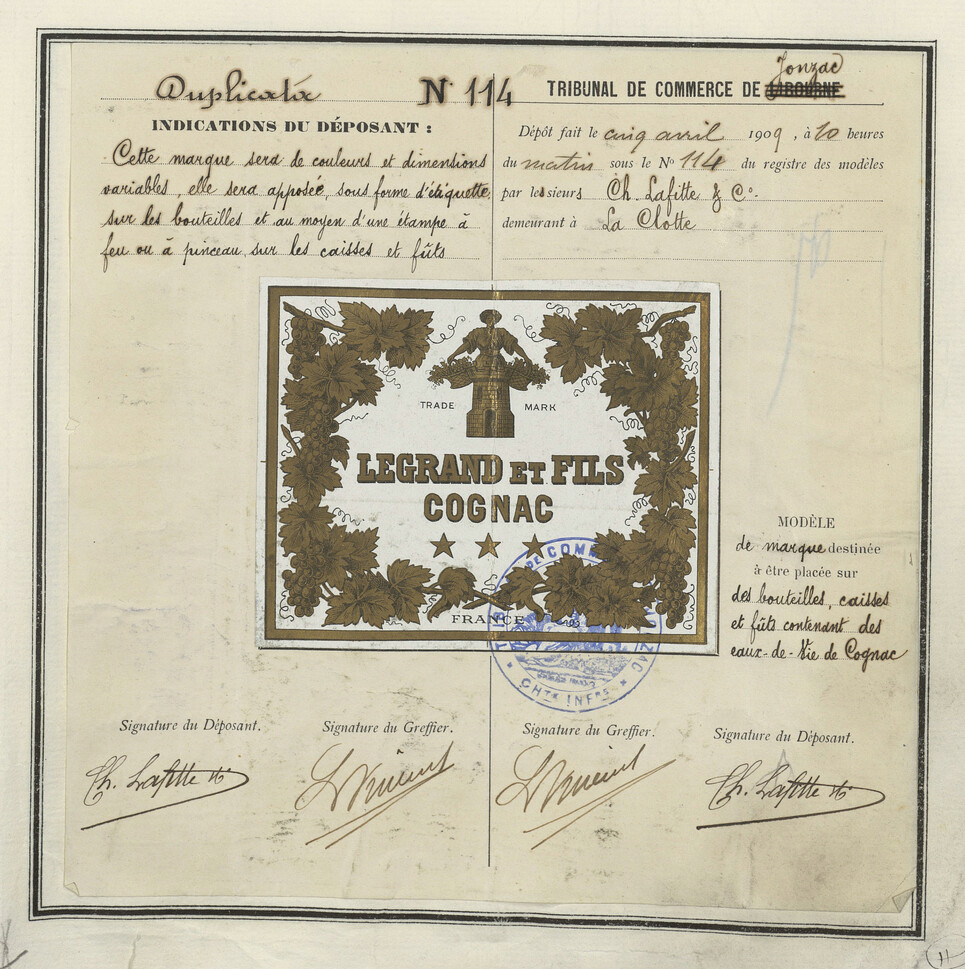 Duplicata
N° 114
INDICATIONS DU DÉPOSANT :
Cette marque sera de couleurs et dimensions
variables, elle sera apposée, sous forme d'étiquette,
sur les bouteilles et au moyen d'une étampe à
feu ou à pinceau, sur les caisses et fûts
Jonzac
TRIBUNAL DE COMMERCE DE LIBOURNE
Dépôt fait le cinq avril 1909, à 10 heures
du matin sous le N° 114 du registre des modèles
par les sieurs Ch. Lafitte & Co.
demeurant à La Clotte
TRADE MARK
LEGRAND ET FILS
COGNAC
FRANCE
DE COMM
JONZAC
CHTE INFRE
MODÈLE
de marque destinée
à être placée sur
des bouteilles, caisses
et fûts contenant des
eaux-de-Vie de Cognac
Signature du Déposant.
Signature du Greffier.
Signature du Greffier.
Signature du Déposant.
Ch. Lafitte &c
Ch. Lafitte &c
11